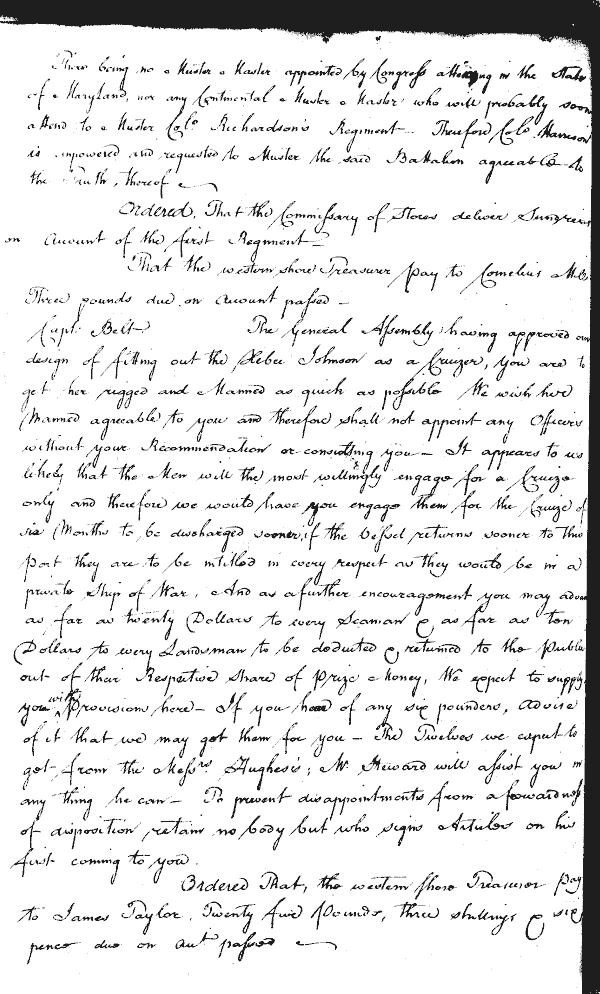 There being no Muster Master appointed by Congress attending in the State
of Maryland, nor any Continental Muster Master who will probably soon
attend to Muster Colo. Richardson's Regiment - Therefore Colo. Harrison
is impowered and requested to Muster the said Battalion agreeable to
the Truth, thereof
Ordered, That the Commissary of Stores deliver Sundries
on Account of the first Regiment -
That the western shore Treasurer pay to Cornelius
Three pounds due on Account passed -
Capt. Belt The General Assembly having approved our
design of fitting out the Xebec Johnson as a Cruizer, you are to
get her rigged and Manned as quick as possible We wish her
Manned agreeable to you and therefore shall not appoint any Officers
without your Recommendation or consulting you - It appears to us
likely that the Men will the most willingly engage for a Cruize
only and therefore we would have you engage them for the Cruize of
six Months to be discharged sooner, if the Vessel returns sooner to this
port they are to be intitled in every respect as they would be in a
private Ship of War, And as a further encouragement you may advan
as far as twenty Dollars to every Seaman & as far as ten
Dollars to every Landsman to be deducted & returned to the Public
out of their Respective share of Prize Money, We expect to supply
you with Provision here - If you hear of any six pounders, advise
of it that we may get them for you - The Twelves we expect to
get from the Messrs. Hughes's; Mr. Steward will assist you in
any thing he can - To prevent disappointments from a forwardness
of disposition retain no body but who signs Articles on his
first coming to you.
Ordered That, the western shore Treasurer pay
to James Taylor, Twenty five Pounds, three shillings & six
pence due on Acct passed